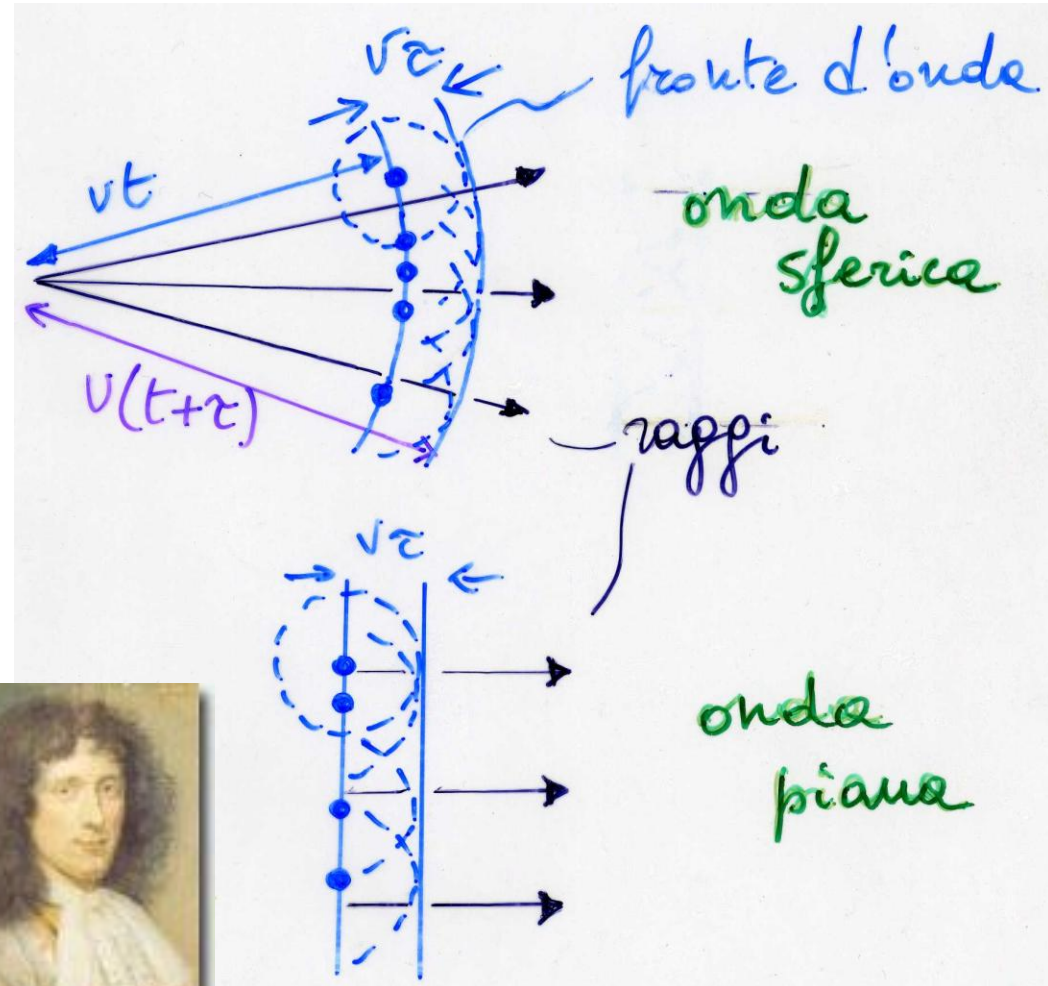 vτ
fronte d'onda
vt
onda
sferica
v(t+τ)
raggi
vτ
onda
piana